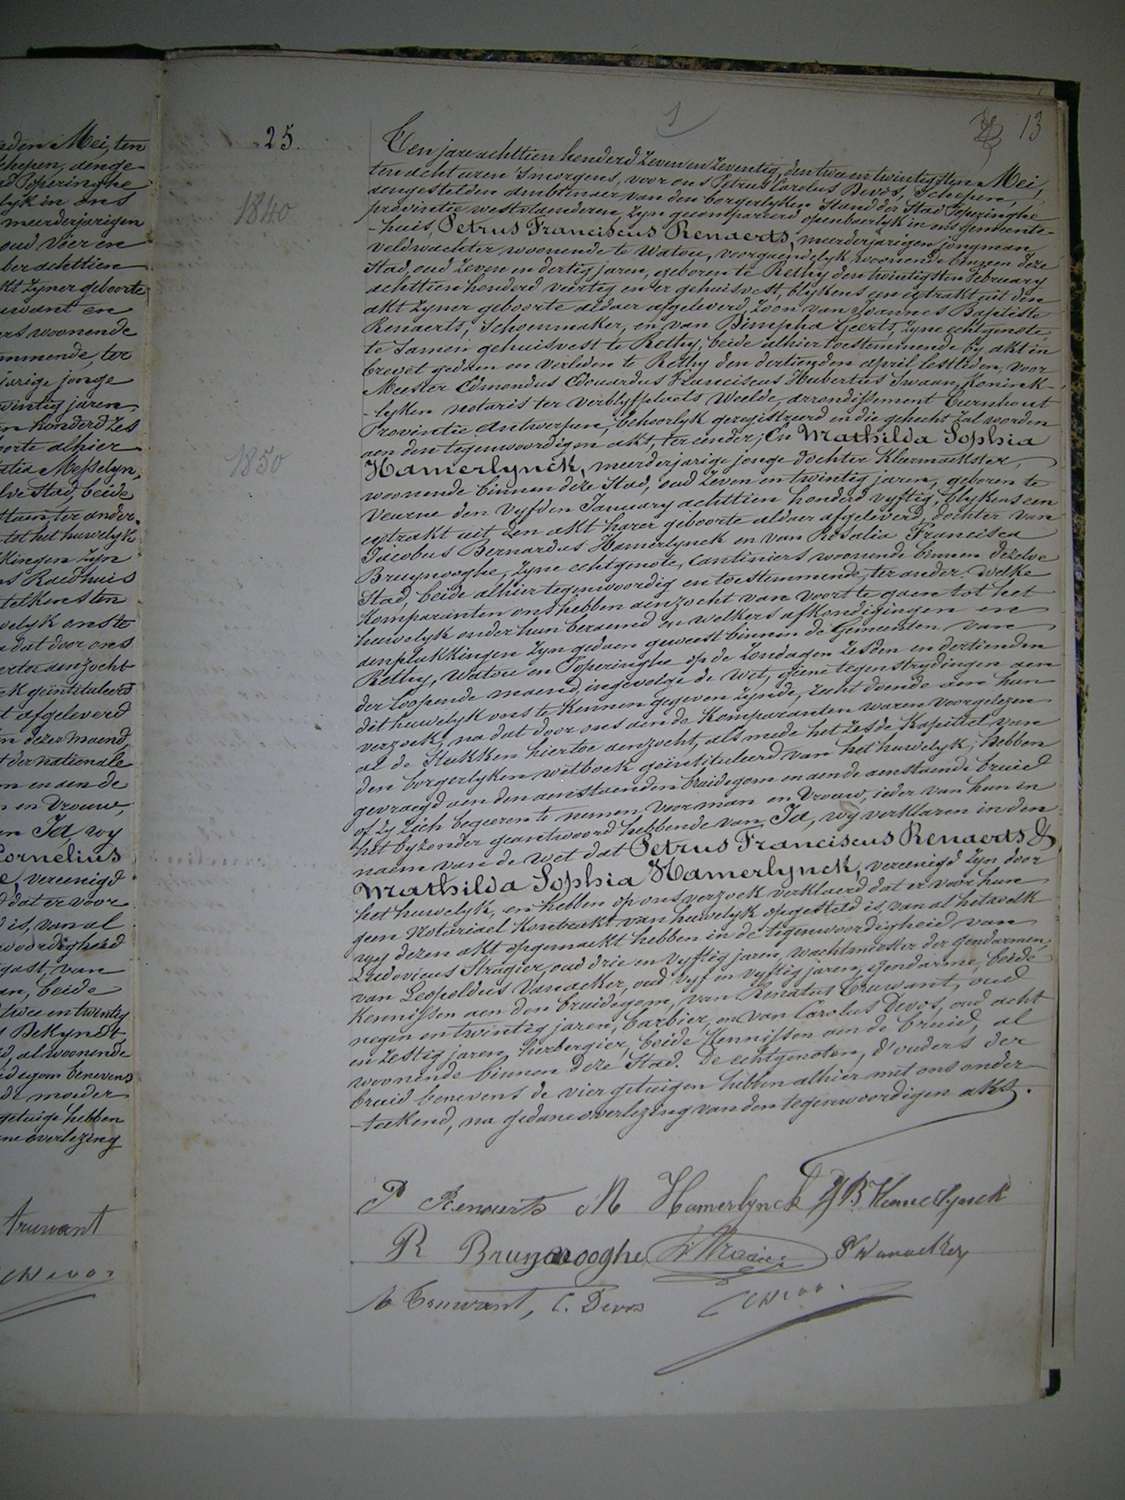 13
25.
Ten jare achttien honderd zeven en zeventig, den twee en twintigsten Mei,
ten acht uren 's morgens, voor ons Petrus Carolus Devos, Schepen,
aengestelden ambtenaer van den borgerlyken Stand der Stad Poperinghe
provintie westvlaenderen, zyn gecompareerd openbaerlyk in ons gemeente-
-huis, Petrus Franciscus Renaerts, meerderjarigen jongman,
veldwachter woonende te Watou, voorgaendelyk woonende binnen deze
Stad, oud zeven en dertig jaren, geboren te Rethy den twintigsten February
achttien honderd viertig en er gehuisvest, blykens een extrakt uit den
akt zyner geboorte aldaer afgeleverd, zoon van Joannes Baptiste
Renaerts, Schoenmaker, en van Dimpha Geerts, zyne echtgenote,
te Samen gehuisvest te Rethy, beide alhier toestemmende by akt in
brevet gedaen en verleden te Rethy den dertigsten april lestleden, voor
Meester Edmondus Edouardus Franciscus Hubertus Swaan, Konink-
-lyken notaris ter verblyfplaets Weelde, arrondissement Turnhout
Provintie Antwerpen, behoorlyk geregistreerd en die gehecht zal worden
aen den tegenwoordigen akt, ter eender; En Mathilda Sophia
1840
1850
Hamerlynck, meerderjarige jonge dochter Kleermaekster,
woonende binnen deze Stad, oud zeven en twintig jaren, geboren te
Veurne den vyfden January achttien honderd vyftig, blykens een
extrakt uit den akt harer geboorte aldaer afgeleverd, dochter van
Jacobus Bernardus Hamerlynck en van Rosalia Francisca
Bruynooghe, zyne echtgenote, Cantiniers woonende binnen dezelve
Stad, beide alhier tegenwoordig en toestemmende, ter ander. Welke
Komparanten ons hebben aenzocht van voort te gaen tot het
huwelyk onder hun beraemd en welkers afkondigingen en
aenplakkingen zyn gedaen geweest binnen de Gemeenten van
Rethy, Watou en Poperinghe op de zondagen zesden en dertienden
der loopende maend, ingevolge de wet, geene tegenstrydigingen aen
dit huwelyk ons te kennen gegeven zynde, recht doende aen hun
verzoek, na dat door ons aen de Komparanten waren voorgelezen
al de Stukken hiertoe aenzocht, als mede het zesde Kapittel van
den borgerlyken wetboek geïntituleerd van het huwelyk; Hebben
gevraegd aen den aenstaenden bruidegom en aen de aenstaende bruid
of zy zich begeeren te nemen, voor man en Vrouw, ieder van hun in
het byzonder geantwoord hebbende van Ja, wy verklaren in den
naem van de wet dat Petrus Franciscus Renaerts &
Mathilda Sophia Hamerlynck, vereenigd zyn door
het huwelyk, en hebben op ons verzoek verklaerd dat er voor hun
geen Notariael Kontrakt van huwelyk opgesteld is, van al hetwelk
wy dezen akt opgemaekt hebben in de tegenwoordigheid van
Ludovicus Stragier, oud drie en vyftig jaren, wachtmeester der gendarmen,
van Leopoldus Vanacker, oud vyf en vyftig jaren, gendarme, beide
Kennissen aen den bruidegom, van Renatus Truwant, oud
negen en twintig jaren, barbier, en van Carolus Devos, oud acht
en zestig jaren, herbergier, beide Kennissen aen de bruid, al
woonende binnen deze Stad. De echtgenoten, d'ouders der
bruid benevens de vier getuigen hebben alhier met ons onder-
-teekend, na gedane overlezing van den tegenwoordigen akt.
P Renaerts M Hamerlynck J B Hamerlynck
R Bruynooghe L Stragier L Vanacker
R Truwant, C. Devos C Devos